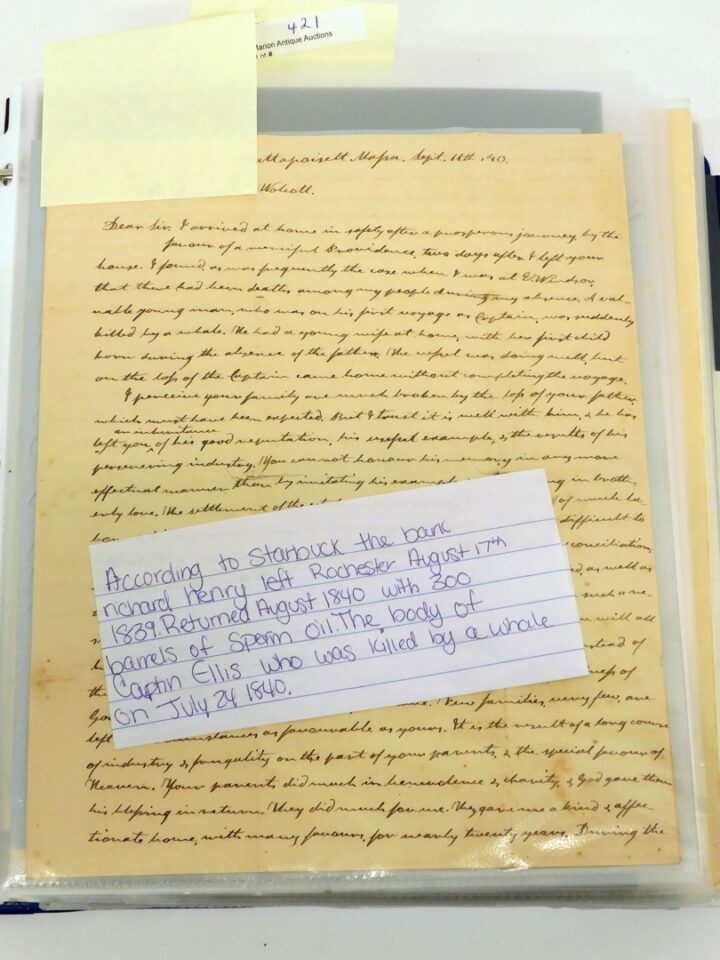 421
Marion Antique Auctions
Lot #
Mapoisett Mass. Sept. 11th '40.
Wolcott.
Dear Sir. I arrived at home in safety after a prosperous journey, by the
favour of a merciful Providence, two days after I left your
house. I found, as was frequently the case when I was at E. Windsor,
that there had been deaths among my people during my absence. A val-
uable young man, who was on his first voyage as Captain, was suddenly
killed by a whale. He had a young wife at home, with her first child
born during the absence of the father. The vessel was doing well, but
on the loss of the Captain came home without completing the voyage.
I perceive your family are much broken by the loss of your father,
which must have been expected. But I trust it is well with him, & he has
an inheritance
left you of his good reputation, his useful example, & the results of his
persevering industry. You cannot honour his memory in any more
effectual manner than by imitating his example in broth-
erly love. The settlement of the of much
difficult to
conciliation,
as well as
will all
instead of
the
God Few families, very few, are
left circumstances as favourable as yours. It is the result of a long course
of industry & frugality on the part of your parents, & the special favour of
Heaven. Your parents did much in benevolence & charity, & God gave them
his blessing in return. They did much for me. They gave me a kind & affec
tionate home, with many favours, for nearly twenty years. During the
According to Starbuck the bark
richard henry left Rochester August 17th
1839. Returned August 1840 with 300
barrels of sperm oil. The body of
Captin Ellis who was killed by a whale
on July 24 1840.